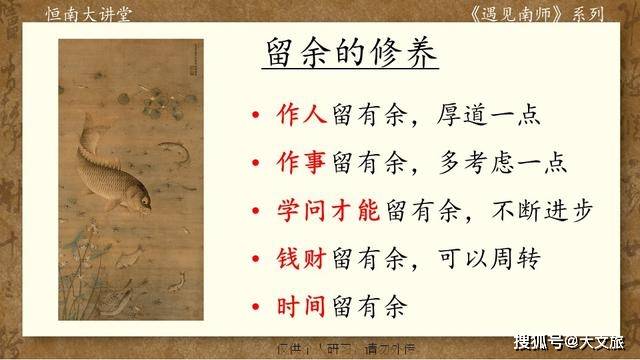 恒南大讲堂
《遇见南师》系列
留余的修养
• 作人留有余，厚道一点
• 作事留有余，多考虑一点
• 学问才能留有余，不断进步
• 钱财留有余，可以周转
• 时间留有余
仅供个人研习，请勿外传
搜狐号@大文旅